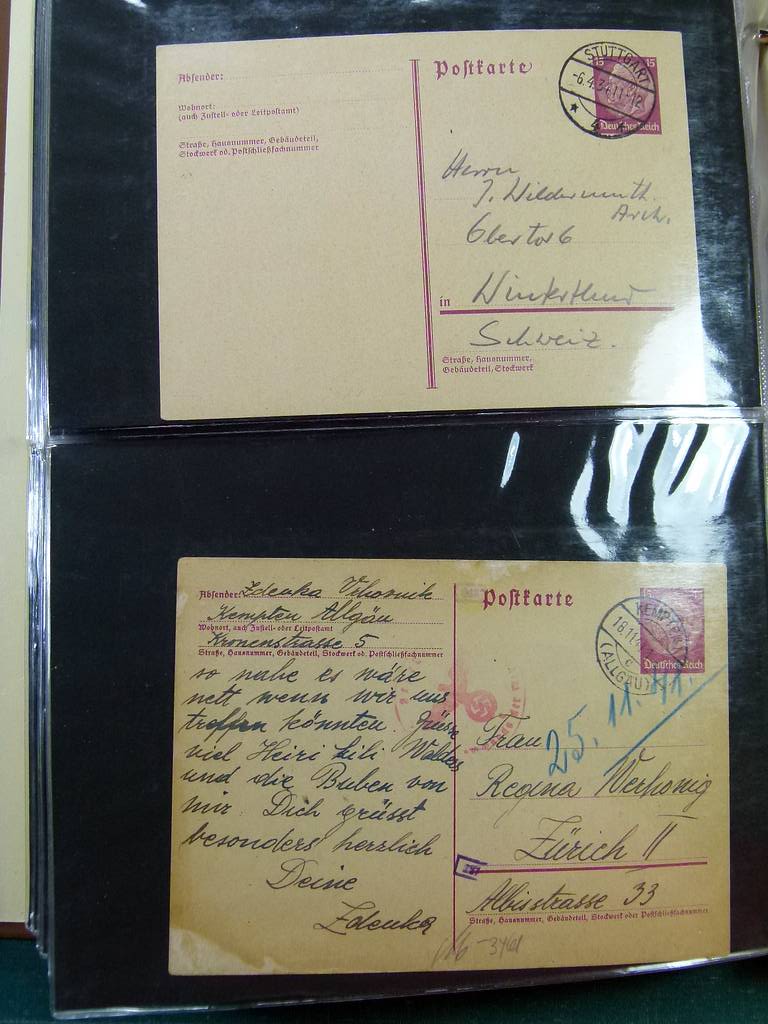 Absender:
Wohnort:
(auch Zustell- oder Leitpostamt)
Straße, Hausnummer, Gebäudeteil,
Stockwerk od. Postschließfachnummer
Postkarte
STUTTGART
-6.4.34.11-12
15
15
Deutsches Reich
Herrn
J. Wildermuth
Arch.
Obertor 6
in Winterthur
Schweiz.
Straße, Hausnummer,
Gebäudeteil, Stockwerk
Absender: Zdenka
Kempten Allgäu
Wohnort, auch Zustell- oder Leitpostamt
Kronenstrasse 5
Straße, Hausnummer, Gebäudeteil, Stockwerk od. Postschließfachnummer
so nahe es wäre
nett wenn wir uns
treffen könnten. Grüsse
viel Heiri Lili Walders
und die Buben von
mir. Dich grüsst
besonders herzlich
Deine
Zdenka
Postkarte
KEMPTEN
18.11.
(ALLGÄU)
c
Deutsches Reich
25.11.41.
Frau
Regina Werhonig
Zürich II
Albisstrasse 33
Straße, Hausnummer, Gebäudeteil, Stockwerk oder Postschließfachnummer